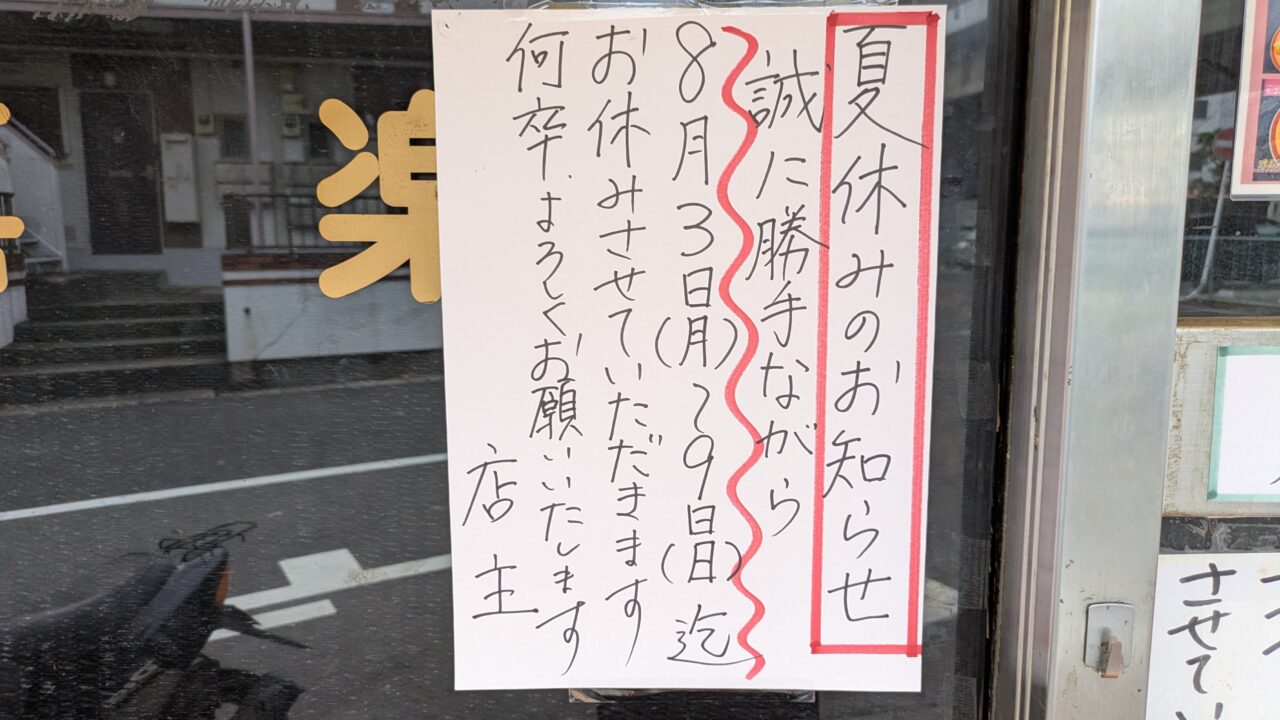 夏休みのお知らせ
誠に勝手ながら
8月3日(月)〜9日(日)迄
お休みさせていただきます
何卒よろしくお願いいたします
店主
楽
させて